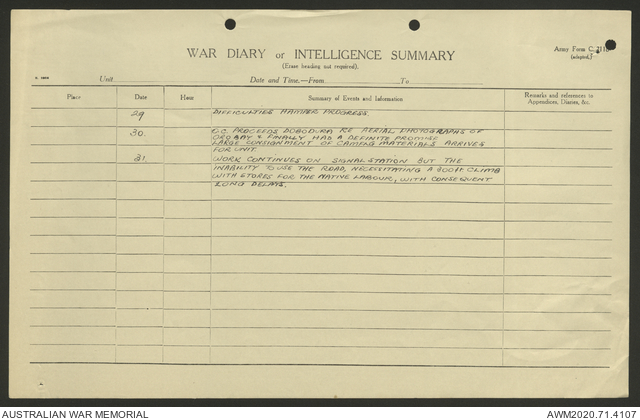 WAR DIARY or INTELLIGENCE SUMMARY
(Erase heading not required).
Army Form C. 2118
(adapted).
Unit
Date and Time.—From To
Place Date Hour Summary of Events and Information Remarks and references to
Appendices, Diaries, &c.
29 DIFFICULTIES HAMPER PROGRESS.
30. O.C. PROCEEDS DOBODURA RE AERIAL PHOTOGRAPHS OF
ORO BAY & FINALLY HAS A DEFINITE PROMISE
LARGE CONSIGNMENT OF CAMFLG MATERIALS ARRIVES
FOR UNIT.
31. WORK CONTINUES ON SIGNAL STATION BUT THE
INABILITY TO USE THE ROAD, NECESSITATING A 800ft CLIMB
WITH STORES FOR THE NATIVE LABOUR, WITH CONSEQUENT
LONG DELAYS.
AUSTRALIAN WAR MEMORIAL AWM2020.71.4107